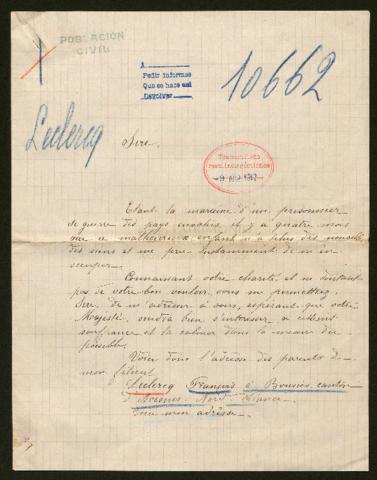 POBLACIÓN
CIVIL
A
Pedir informes
Que se hace así
Devolver
10662
Leclercq
Sire,
Transmitido
1917
Etant la marraine d'un prisonnier
de guerre des pays envahis, il y a quatre mois
que ce malheureux enfant n'a plus des nouvelles
des siens et me prie instamment de m'en
occuper.
Connaissant votre charité et ne doutant
pas de votre bon vouloir vous me permettez
Sire, de m'adresser à vous, espérant que votre
Majesté, voudra bien s'intéresser à cette
souffrance et la calmer dans la mesure du
possible.
Voici donc l'adresse des parents de
mon filleul
Leclercq François à canton
d'Avesnes Nord France
mon adresse